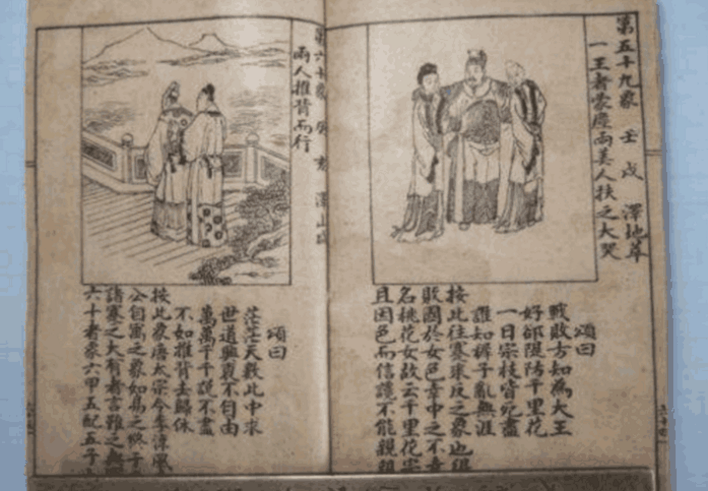 第五十九象 壬戌 澤地萃
一王者蒙塵兩美人扶之大哭
頌曰
戰敗方知為大王
好邰隄防千里花
一日宗枝皆死盡
誰知褲子亂無涯
按此往蹇來反之象也
敗國於女色幸中之不幸
名桃花女故云千里花
且因色而信讒不能親
第六十象 癸亥 澤山咸
兩人推背而行
頌曰
茫茫天數此中求
世道興衰不自由
萬萬千千說不盡
不如推背去歸休
按此象唐太宗令李淳風
公自寓之象如易之終于
諸蹇之大有者言雖之無
六十者象六甲五配五子